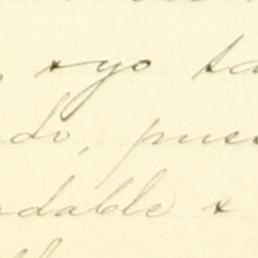 , + yo ta
do, pues
dable +